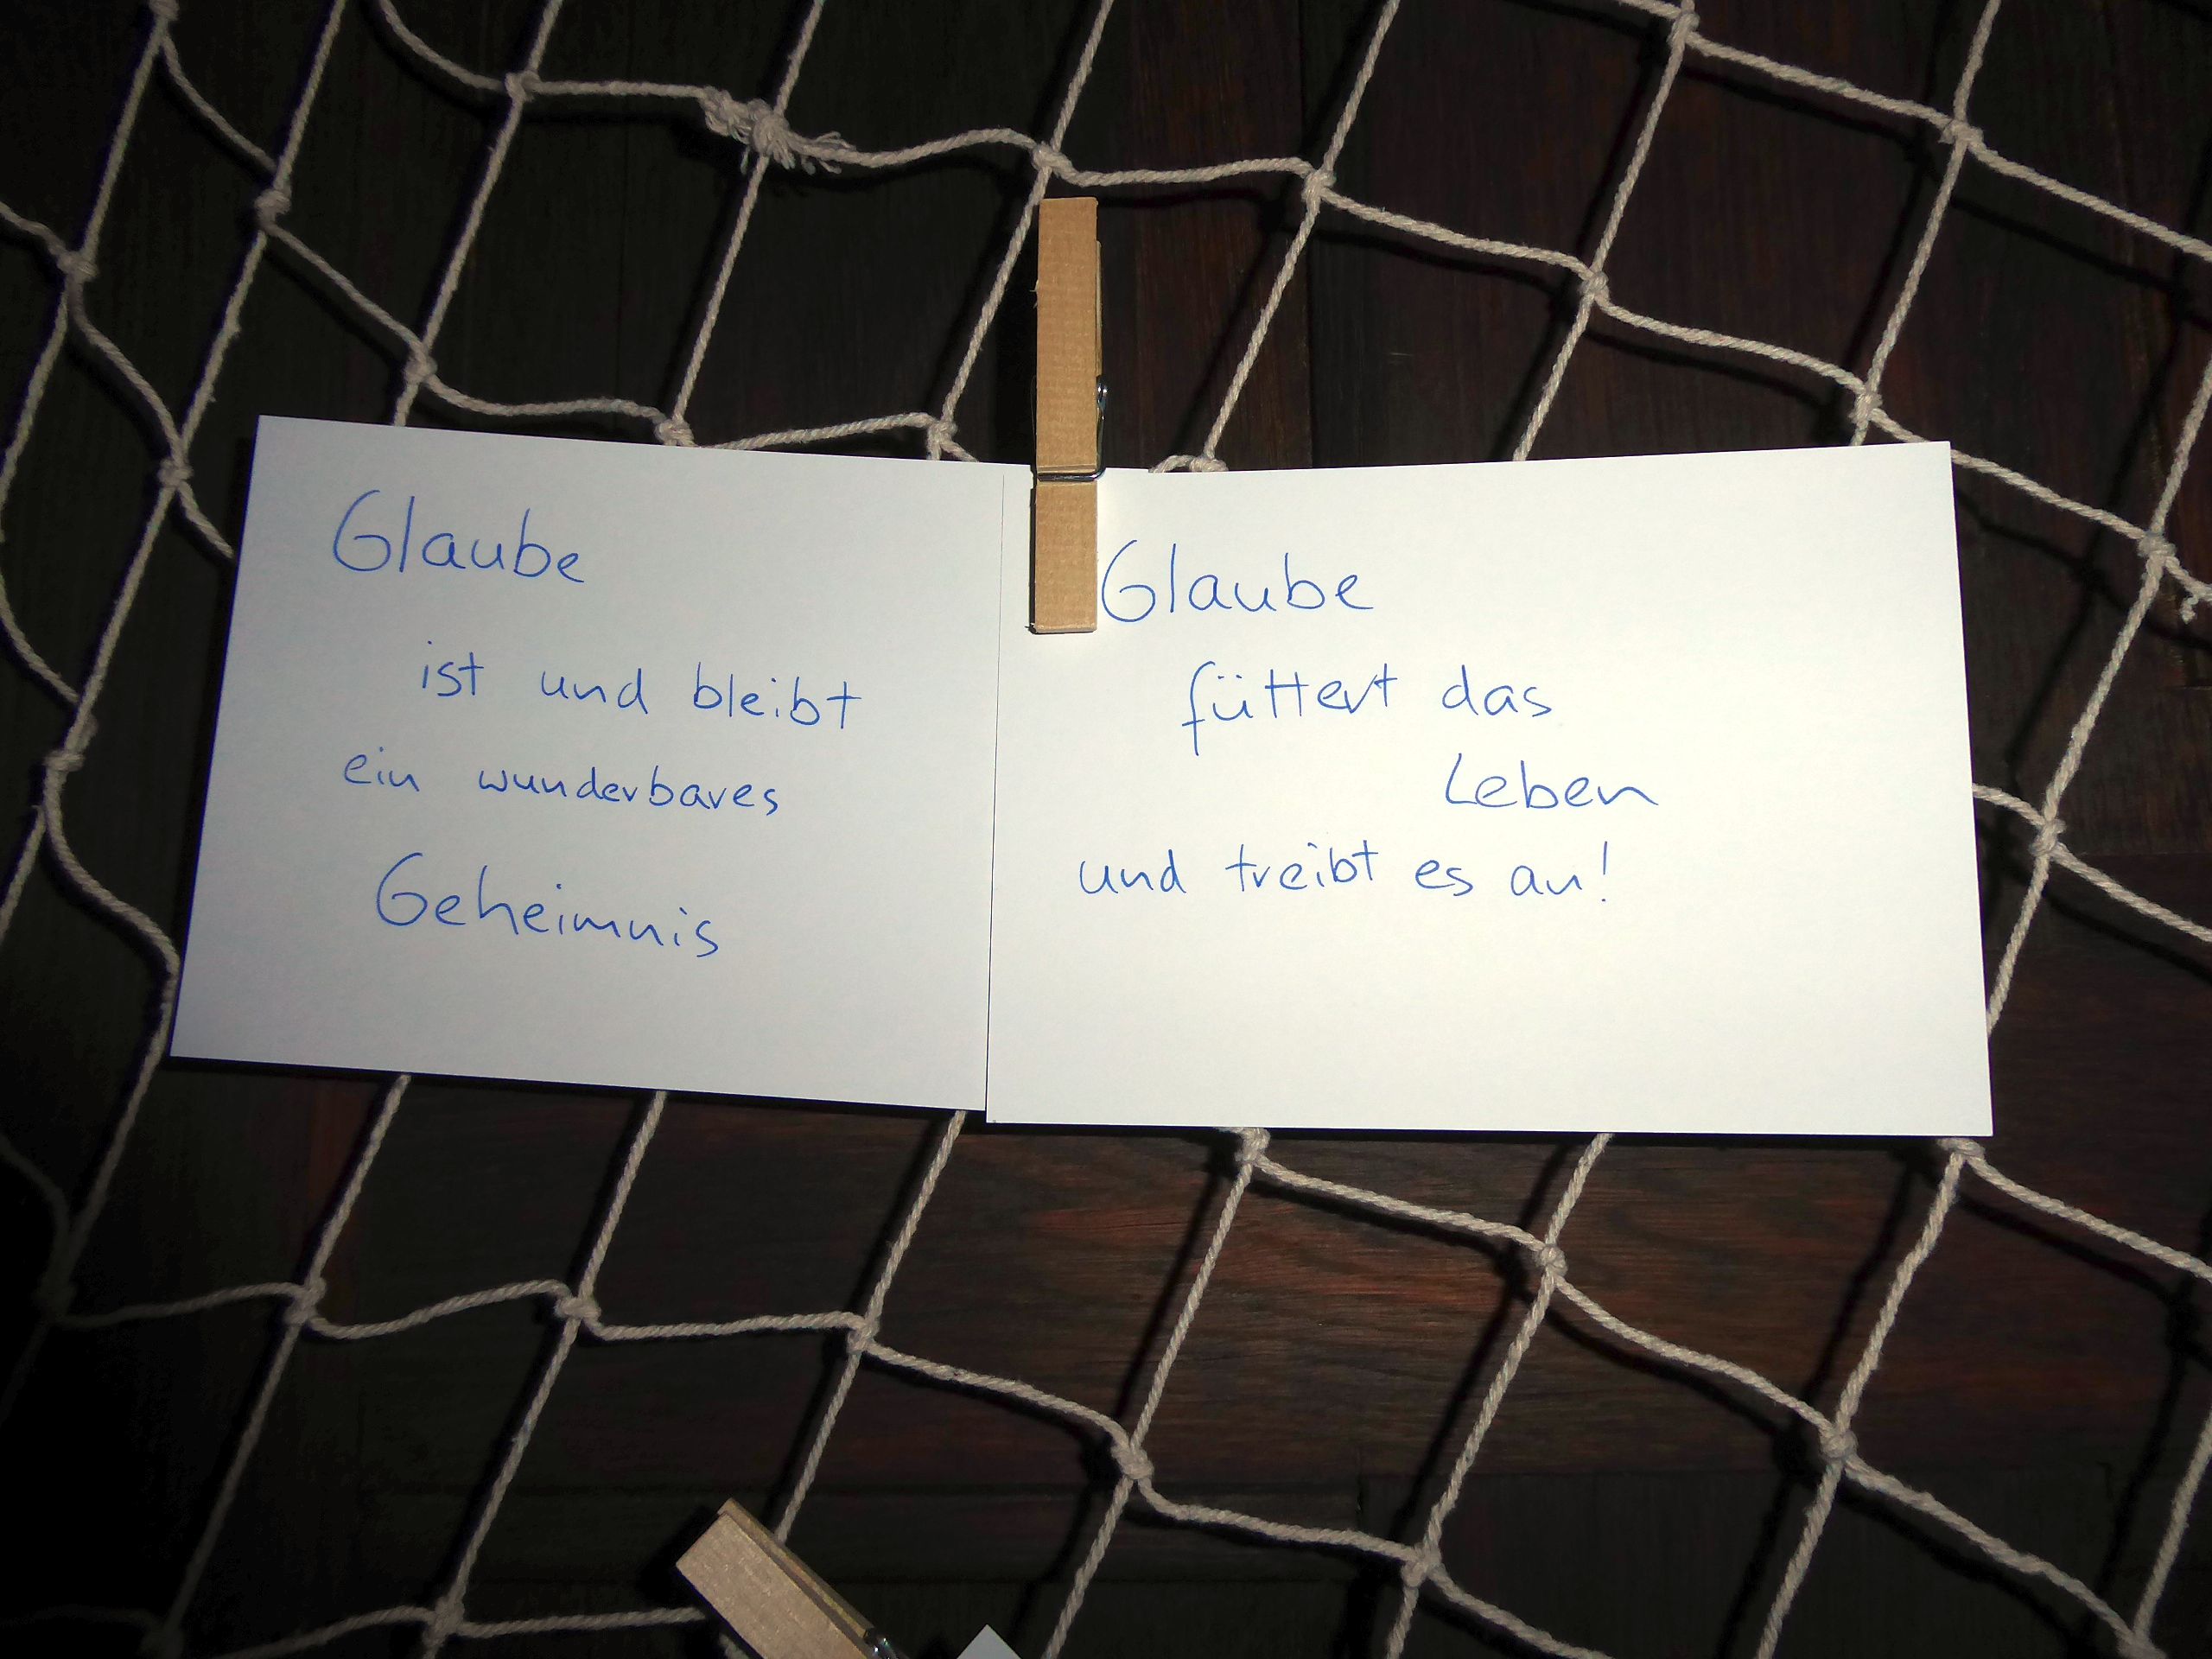 Glaube
ist und bleibt
ein wunderbares
Geheimnis
Glaube
füttert das
Leben
und treibt es an!